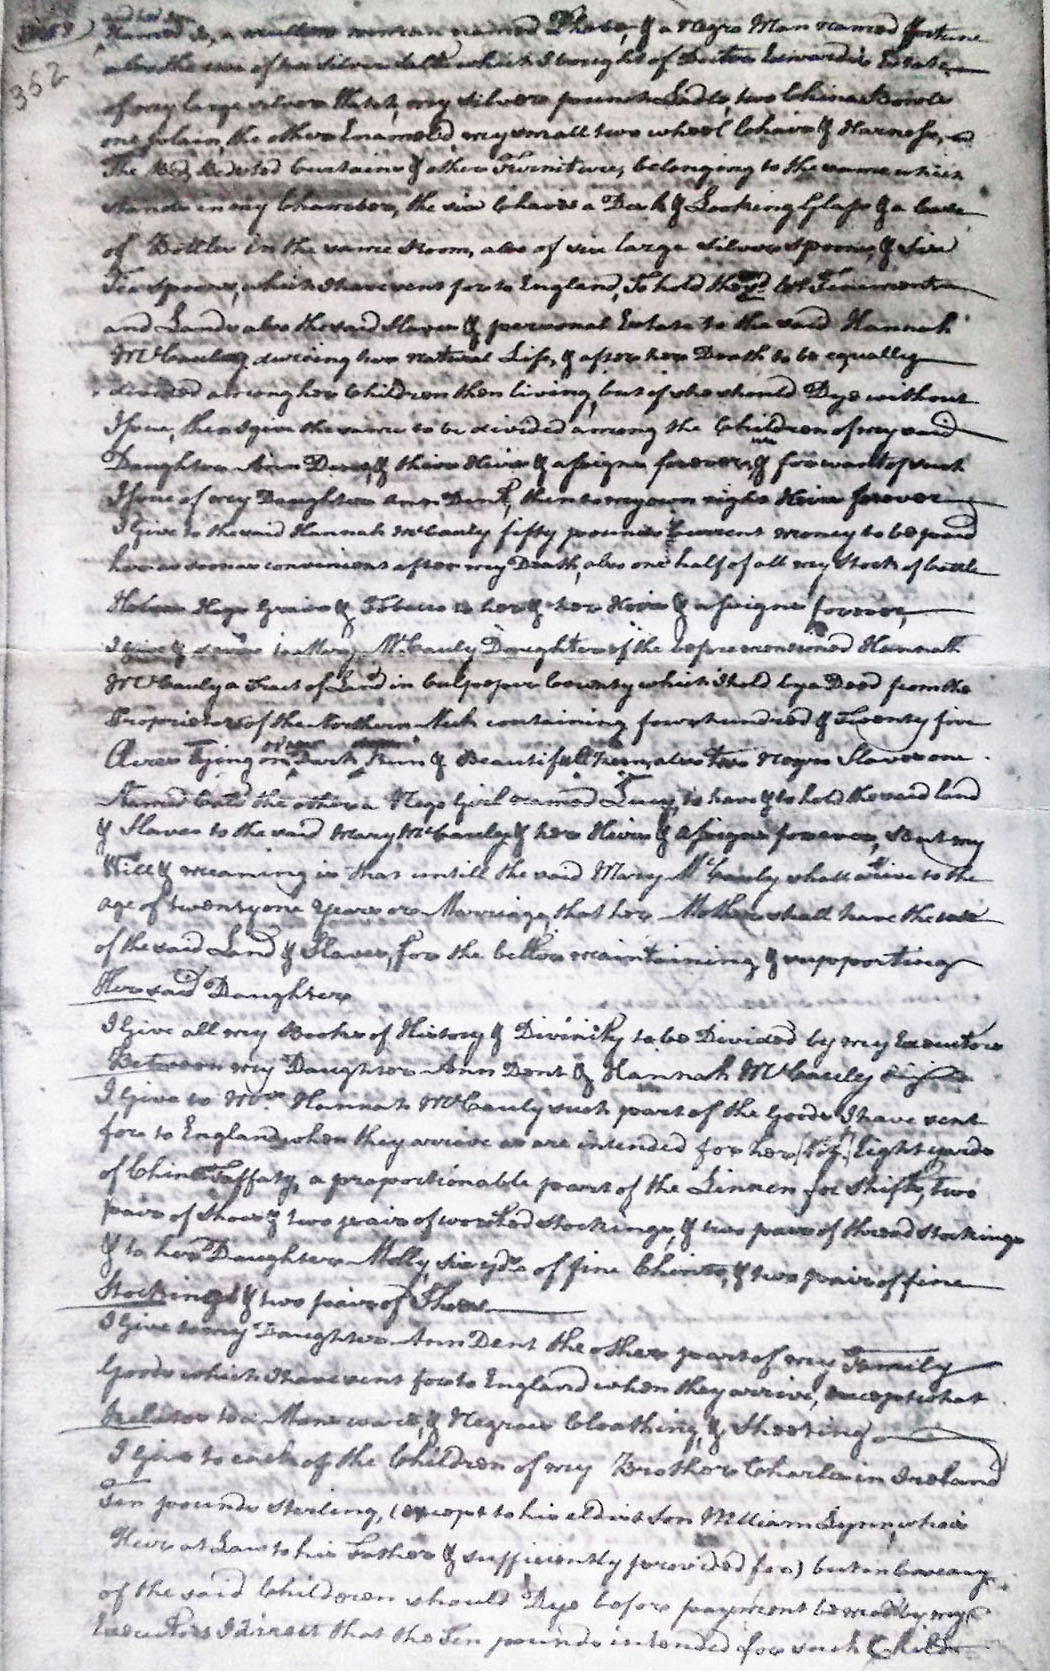 and her Son
362
Named , a mulatto woman named Phebe, & a Negro Man named Fortune
also the use of two Silver Salts which I bought of Doctor Edwards's Estate
of my large silver Watch, my silver punch Ladle, two China Bowls
one plain, the other Enameled, my small two wheel Chair & Harness,
The Bed, Bedsted Curtains & other Furniture, belonging to the same which
stands in my Chamber, the six Chairs a Desk & Looking Glass & a Case
of Bottles in the same Room, also of six large silver spoons, & Six
Tea Spoons, which I have sent for to England, To hold the sd. Lot Tenements
and Lands also the said Slaves & personal Estate to the said Hannah
McCauley during her natural Life, & after her Death to be equally
divided among her Children then living, but if she should Dye without
Issue, then I give the same to be divided among the Children of my said
Daughter Ann Dent, & their Heirs & assigns forever, & for want of such
Issue of my Daughter Ann Dent, then to my own right Heirs forever
I give to the said Hannah McCauly fifty pounds Current money to be paid
her as soon as convenient after my Death, also one half of all my Stock of Cattle
Hogs Grain & Tobacco to her & her Heirs & assigns forever,
I give & devise to Mary McCauly Daughter of the beforementioned Hannah
McCauly a Tract of Land in Culpeper County which I hold by a Deed from the
Proprietors of the Northern Neck containing four hundred & Twenty five
Acres lying on or near Dark Run & Beautifull Run, also two Negro Slaves one
Named Cate the other a Nego Girl named Lucy, to have & to hold the said land
& Slaves to the said Mary McCauly & her Heirs & assigns forever, But my
Will & meaning is that untill the said Mary McCauly shall arive to the
age of twenty one Years or Marriage, that her Mother shall have the use
of the said Land & Slaves, for the better maintaining & supporting
Her said Daughter
I Give all my Books of History & Divinity to be Divided by my Executors
Between my Daughter Ann Dent & Hannah McCauly
I Give to Mrs. Hannah McCauly such part of the Goods I have sent
for to England when they arrive as are intended for her, (Viz.) Eight yards
of China Taffaty, a proportionable part of the Linnen for Shifts, two
pair of Shoes & two pair of worsted stockings, & two pair of thread stockings
& to her Daughter Molly, six yds. of fine Chints, & two pair of fine
Stockings & two pair of Shoes
I Give to my Daughter Ann Dent the other part of my Family
Goods which I have sent for to England when they arrive, except what
Relates to Mens ware, & Negroes Cloathing, & Sheeting
I Give to each of the Children of my Brother Charles in Ireland
Ten pounds sterling, (except to his eldest Son William Lynn, who is
Heir at Law to his Father & sufficiently provided for) but in Case any
of the said Children should Dye before payment be made by my
Executors I direct that the Ten pounds intended for such Child